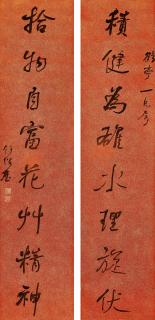 積健為雄水理旋伏
拾物自富花艸精神